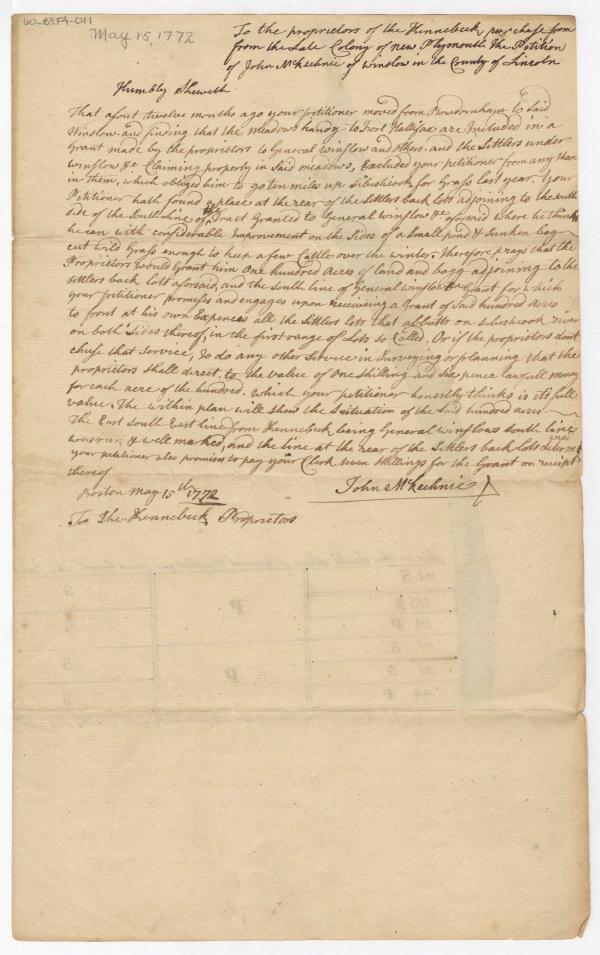 60_B3F4-011
May 15, 1772
To the proprietors of the Kennebeck purchase from
from the Late Colony of new Plymouth The Petition
of John McKechnie of Winslow in the County of Lincoln
Humbly Sheweth
That about twelve months ago your petitioner moved from Bowdornham to Said
Winslow and finding that the meadows handy to Fort Hallifax are Included in a
Grant made by the proprietors to General Winslow and others. and the Settlers under
Winslow &c Claiming property in Said meadows, Excluded your petitioner from any share
in them, which obliged him to go ten miles up Sibeshcook for Grass last year. Your
Petitioner hath found a place at the rear of the Settlers back lotts adjoining to the South
side of the South Line of the Tract Granted to General Winslow &c aforsaid where he thinks
he can with considerable Improvement on the Sides of a Small pond & Sunken bog
cut wild Grass enough to keep a few Cattle over the winter. Therefore prays that the
Proprietors would Grant him One hundred Acres of land and bogg adjoining to the
settlers back lotts aforsaid, and the South line of General Winslow &c Grant for which
your petitioner promises and engages upon receiveing a Grant of Said hundred acres
to front at his own Expences all the Settlers lots that abbutts on Sibeshcook river
on both Sides thereof, in the first range of Lots so Called. Or if the proprietors dont
chuse that Service, to do any other Service in Surveying or planning that the
proprietors shall direct. to the value of One shilling and Six pence lawfull money
for each acre of the hundred. which your petitioner honestly thinks is its full
value. The within plan will shew the Scituation of the Said hundred acres
The East South East line from Kennebeck being General Winslows South line
was run & well marked, and the line at the rear of the Settlers back lots
your petitioner also promises to pay your Clerk Seven Shillings for the Grant on reciept
thereof
Boston May 15th 1772
John McKechnie
To The Kennebeck Proprietors